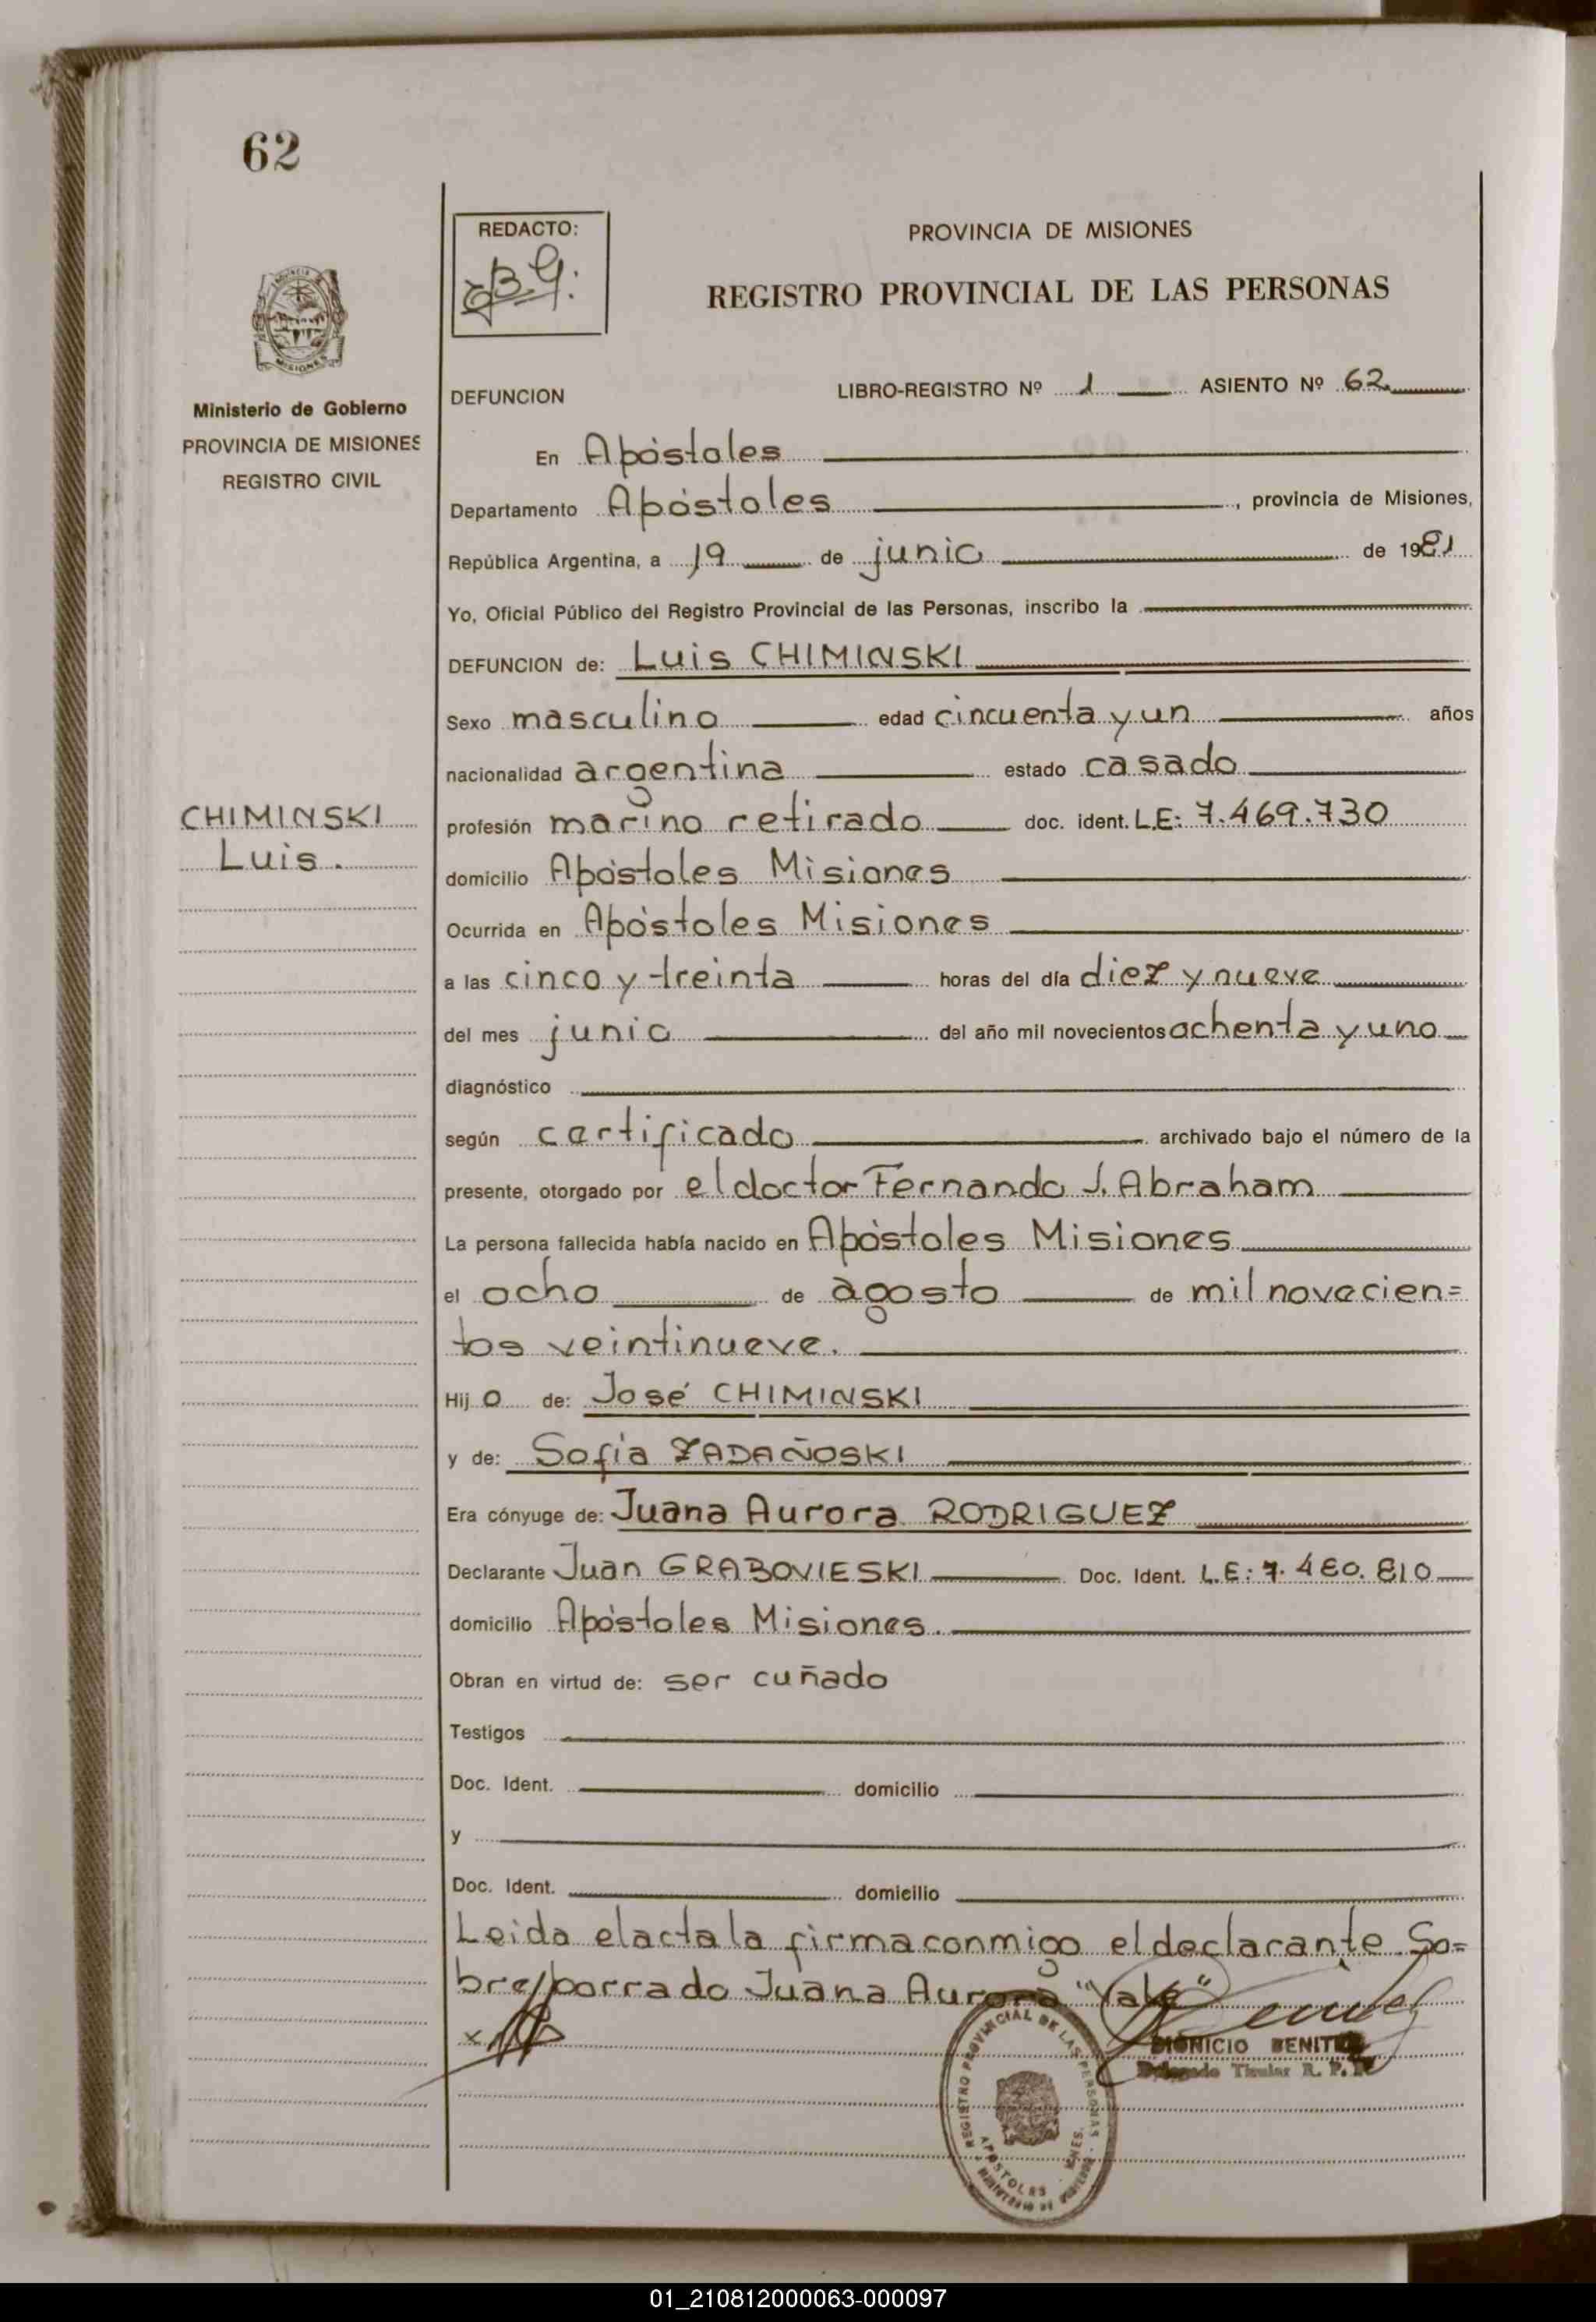 62
REDACTO:
PROVINCIA DE MISIONES
REGISTRO PROVINCIAL DE LAS PERSONAS
MISIONES
Ministerio de Gobierno
PROVINCIA DE MISIONES
REGISTRO CIVIL
DEFUNCION LIBRO-REGISTRO Nº 1 ASIENTO Nº 62
En Apóstoles
Departamento Apóstoles, provincia de Misiones,
República Argentina, a 19 de junio de 1981
Yo, Oficial Público del Registro Provincial de las Personas, inscribo la
DEFUNCION de: Luis CHIMINSKI
Sexo masculino edad cincuenta y un años
nacionalidad argentina estado casado
CHIMINSKI
Luis.
profesión marino retirado doc. ident. L.E: 7.469.730
domicilio Apóstoles Misiones
Ocurrida en Apóstoles Misiones
a las cinco y treinta horas del día diez y nueve
del mes junio del año mil novecientos ochenta y uno
diagnóstico
según certificado archivado bajo el número de la
presente, otorgado por el doctor Fernando J. Abraham
La persona fallecida había nacido en Apóstoles Misiones
el ocho de agosto de mil novecien=
tos veintinueve.
Hijo de: José CHIMINSKI
y de: Sofia ZADAÑOSKI
Era cónyuge de: Juana Aurora RODRIGUEZ
Declarante Juan GRABOVIESKI Doc. Ident. L.E: 7.480.810
domicilio Apóstoles Misiones.
Obran en virtud de: ser cuñado
Testigos
Doc. Ident. domicilio
y
Doc. Ident. domicilio
Leida el acta la firma conmigo el declarante. So=
bre/borrado Juana Aurora "Vale"
DIONICIO BENITEZ
Delegado Titular R. P.
REGISTRO PROVINCIAL DE LAS PERSONAS
APOSTOLES - MNES.
01_210812000063-000097